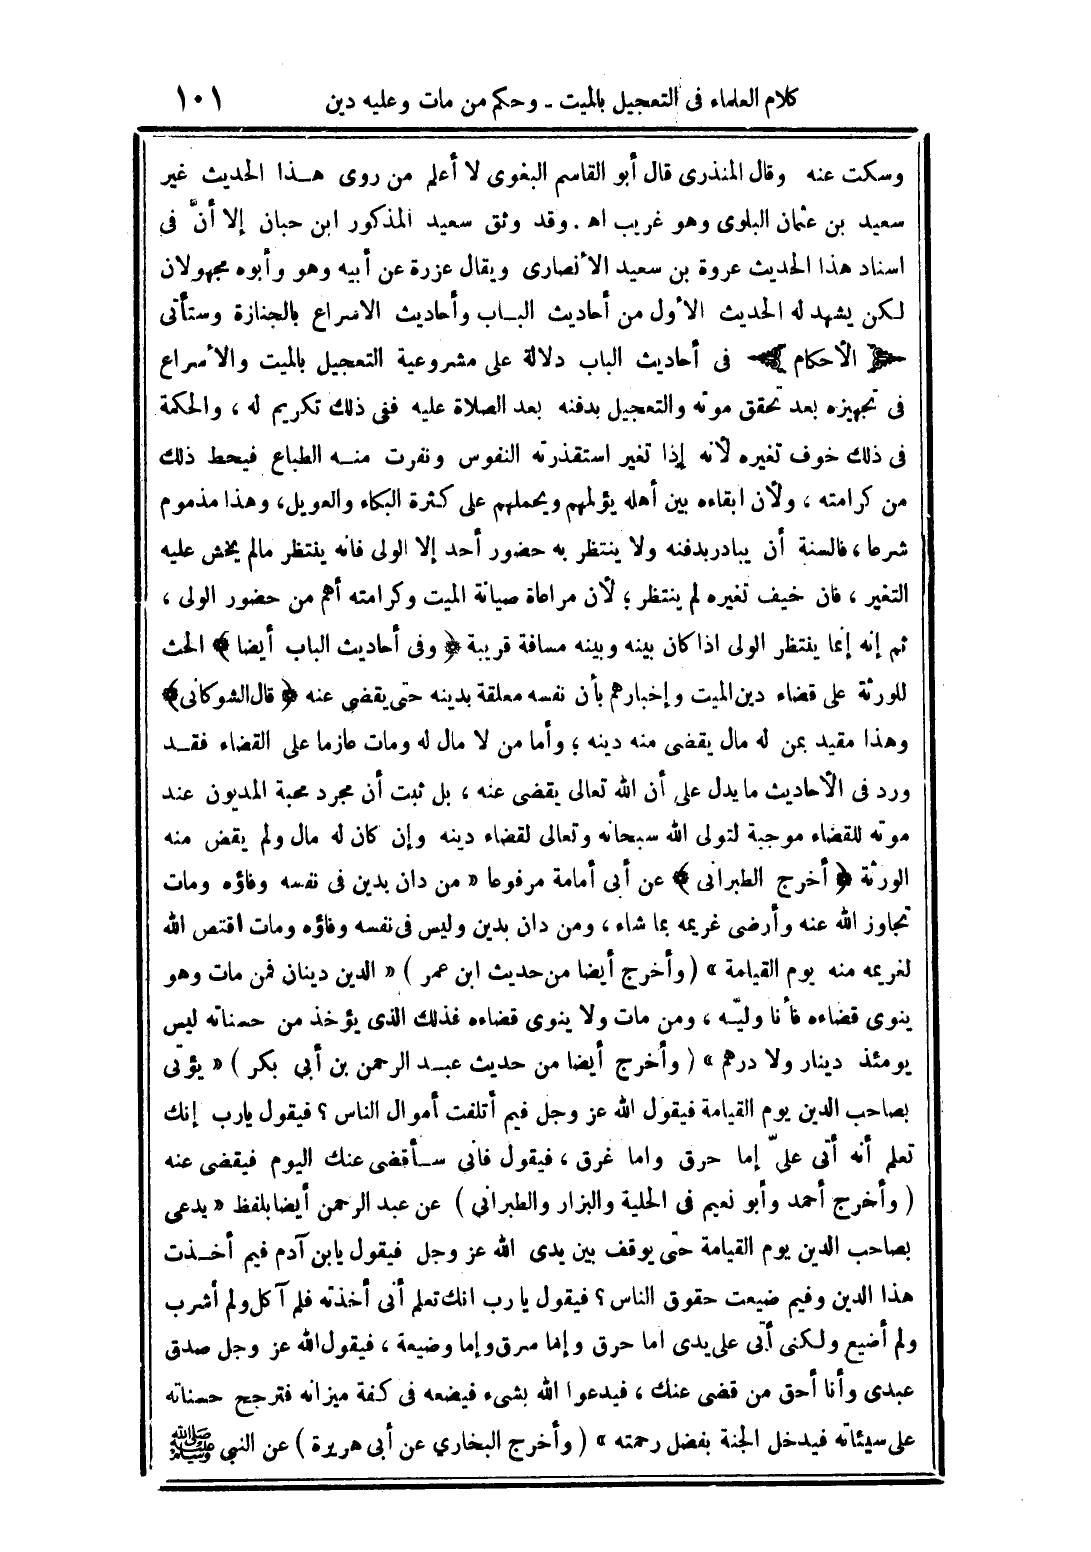 كلام العلماء فى التعجيل بالميت ـ وحكم من مات وعليه دين ١٠١
وسكت عنه وقال المنذرى قال أبو القاسم البغوى لا أعلم من روى هـذا الحديث غير
سعيد بن عثمان البلوى وهو غريب اهـ . وقد وثق سعيد المذكور ابن حبان إلا أنَّ فى
اسناد هذا الحديث عروة بن سعيد الأنصارى ويقال عزرة عن أبيه وهو وأبوه مجهولان
لكن يشهد له الحديث الأول من أحاديث البـاب وأحاديث الاسراع بالجنازة وستأتى
﴿ الأحكام ﴾ فى أحاديث الباب دلالة على مشروعية التعجيل بالميت والأسراع
فى تجهيزه بعد تحقق موته والتعجيل بدفنه بعد الصلاة عليه ففى ذلك تكريم له ، والحكمة
فى ذلك خوف تغيره لأنه إذا تغير استقذرته النفوس ونفرت منـه الطباع فيحط ذلك
من كرامته ، ولأن ابقاءه بين أهله يؤلمهم ويحملهم على كثرة البكاء والعويل، وهذا مذموم
شرعا ، فالسنة أن يبادر بدفنه ولا ينتظر به حضور أحد إلا الولى فانه ينتظر مالم يخش عليه
التغير ، فان خيف تغيره لم ينتظر ؛ لأن مراعاة صيانة الميت وكرامته أهم من حضور الولى ،
ثم إنه إنما ينتظر الولى اذا كان بينه وبينه مسافة قريبة ﴿ وفى أحاديث الباب أيضا ﴾ الحث
للورثة على قضاء دين الميت وإخبارهم بأن نفسه معلقة بدينه حتى يقضى عنه ﴿ قال الشوكانى ﴾
وهذا مقيد بمن له مال يقضى منه دينه ؛ وأما من لا مال له ومات عازما على القضاء فقـد
ورد فى الأحاديث ما يدل على أن الله تعالى يقضى عنه ، بل ثبت أن مجرد محبة المديون عند
موته للقضاء موجبة لتولى الله سبحانه وتعالى لقضاء دينه وإن كان له مال ولم يقض منه
الورثة ﴿ أخرج الطبرانى ﴾ عن أبى أمامة مرفوعا « من دان بدين فى نفسه وفاؤه ومات
تجاوز الله عنه وأرضى غريمه بما شاء ، ومن دان بدين وليس فى نفسه وفاؤه ومات اقتص الله
لغريمه منه يوم القيامة » ( وأخرج أيضا من حديث ابن عمر ) « الدين دينان فمن مات وهو
ينوى قضاءه فأنا وليّـه ، ومن مات ولا ينوى قضاءه فذلك الذى يؤخذ من حسناته ليس
يومئذ دينار ولا درهم » ( وأخرج أيضا من حديث عبـد الرحمن بن أبي بكر ) « يؤتى
بصاحب الدين يوم القيامة فيقول الله عز وجل فيم أتلفت أموال الناس ؟ فيقول يارب إنك
تعلم أنه أتى علىّ إما حرق واما غرق ، فيقول فانى سـأقضى عنك اليوم فيقضى عنه
( وأخرج أحمد وأبو نعيم فى الحلية والبزار والطبراني ) عن عبد الرحمن أيضا بلفظ « يدعى
بصاحب الدين يوم القيامة حتى يوقف بين يدى الله عز وجل فيقول يابن آدم فيم أخـذت
هذا الدين وفيم ضيعت حقوق الناس ؟ فيقول يا رب انك تعلم أنى أخذته فلم آكل ولم أشرب
ولم أضيع ولكنى أتى على يدى اما حرق وإما سرق وإما وضيعة ، فيقول الله عز وجل صدق
عبدى وأنا أحق من قضى عنك ، فيدعوا الله بشىء فيضعه فى كفة ميزانه فترجح حسناته
على سيئاته فيدخل الجنة بفضل رحمته » ( وأخرج البخاري عن أبى هريرة ) عن النبي ﷺ